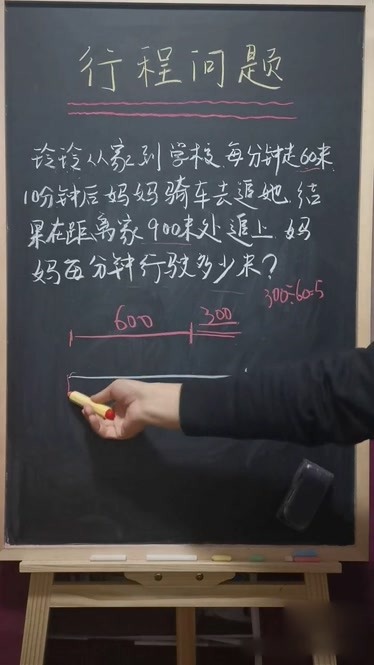 行程问题
玲玲从家到学校,每分钟走60米,
10分钟后妈妈骑车去追她,结
果在距离家900米处追上,妈
妈每分钟行驶多少米?
300÷60=5
600 300